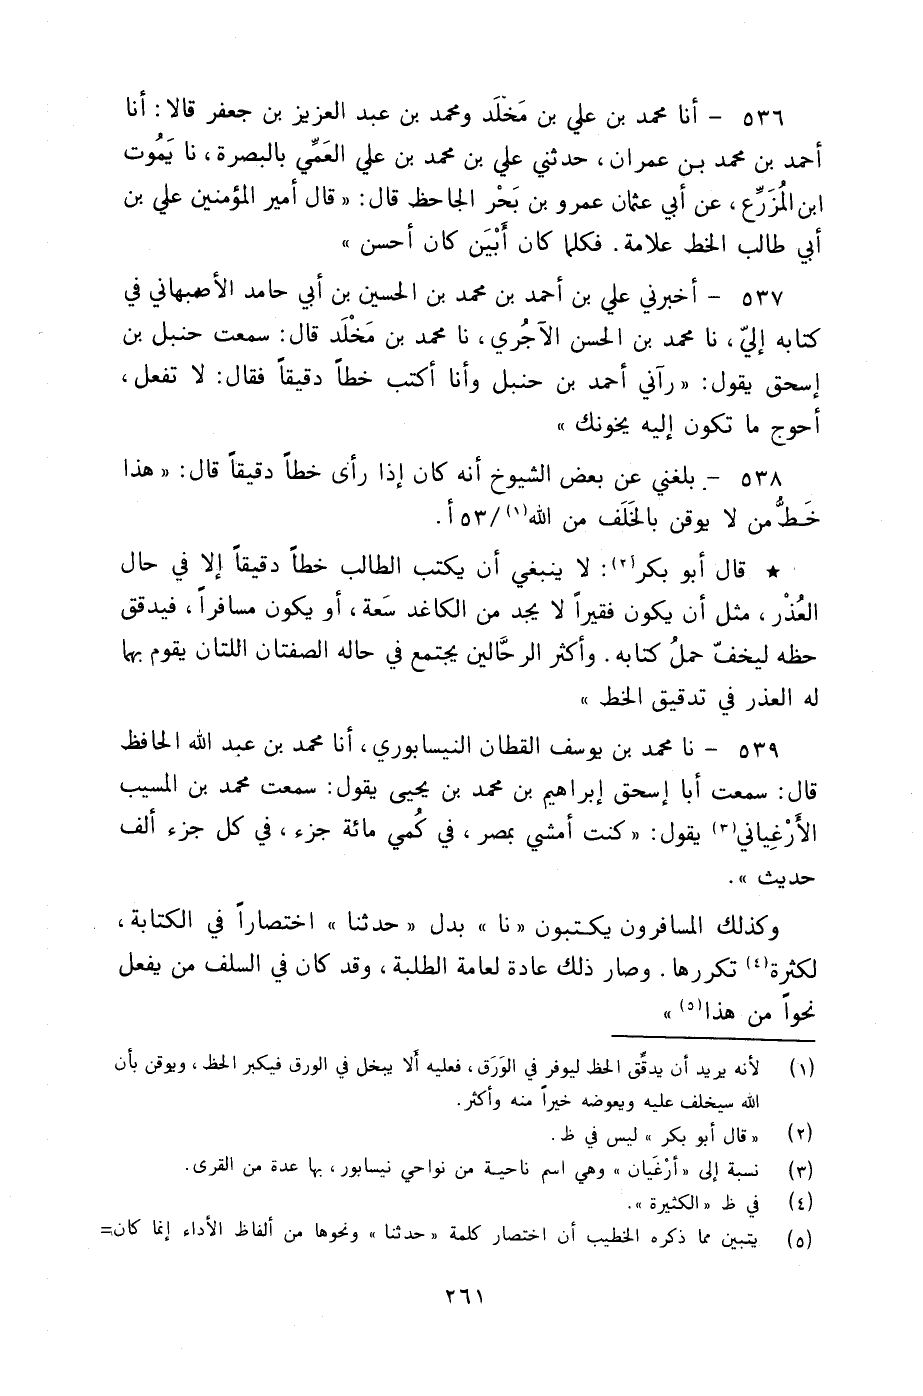 ٥٣٦ - أنا محمد بن علي بن مَخْلَد ومحمد بن عبد العزيز بن جعفر قالا: أنا
أحمد بن محمد بن عمران، حدثني علي بن محمد بن علي العَمِّي بالبصرة، نا يَمُوت
ابن المُزَرِّع، عن أبي عثمان عمرو بن بَحْر الجاحظ قال: « قال أمير المؤمنين علي بن
أبي طالب الخط علامة. فكلما كان أَبْيَن كان أحسن »
٥٣٧ - أخبرني علي بن أحمد بن محمد بن الحسين بن أبي حامد الأصبهاني في
كتابه إليّ، نا محمد بن الحسن الآجُري، نا محمد بن مَخْلَد قال: سمعت حنبل بن
إسحق يقول: « رآني أحمد بن حنبل وأنا أكتب خطاً دقيقاً فقال: لا تفعل،
أحوج ما تكون إليه يخونك »
٥٣٨ - بلغني عن بعض الشيوخ أنه كان إذا رأى خطاً دقيقاً قال: « هذا
خَطُّ من لا يوقن بالخَلَف من الله(١)/٥٣ أ.
★ قال أبو بكر(٢): لا ينبغي أن يكتب الطالب خطاً دقيقاً إلا في حال
العُذْر، مثل أن يكون فقيراً لا يجد من الكاغد سَعة، أو يكون مسافراً، فيدقق
حظه ليخفّ حملُ كتابه. وأكثر الرحَّالين يجتمع في حاله الصفتان اللتان يقوم بها
له العذر في تدقيق الخط »
٥٣٩ - نا محمد بن يوسف القطان النيسابوري، أنا محمد بن عبد الله الحافظ
قال: سمعت أبا إسحق إبراهيم بن محمد بن يحيى يقول: سمعت محمد بن المسيب
الأَرْغِياني(٣) يقول: « كنت أمشي بمصر، في كُمي مائة جزء، في كل جزء ألف
حديث ».
وكذلك المسافرون يكتبون « نا » بدل « حدثنا » اختصاراً في الكتابة،
لكثرة(٤) تكررها. وصار ذلك عادة لعامة الطلبة، وقد كان في السلف من يفعل
نحواً من هذا(٥) »
(١) لأنه يريد أن يدقِّق الحظ ليوفر في الوَرَق، فعليه أَلا يبخل في الورق فيكبر الحظ، ويوقن بأن
الله سيخلف عليه ويعوضه خيراً منه وأكثر.
(٢) « قال أبو بكر » ليس في ظ.
(٣) نسبة إلى « أرْغَيان » وهي اسم ناحية من نواحي نيسابور، بها عدة من القرى.
(٤) في ظ « الكثيرة ».
(٥) يتبين مما ذكره الخطيب أن اختصار كلمة « حدثنا » ونحوها من ألفاظ الأداء إنما كان=
٢٦١